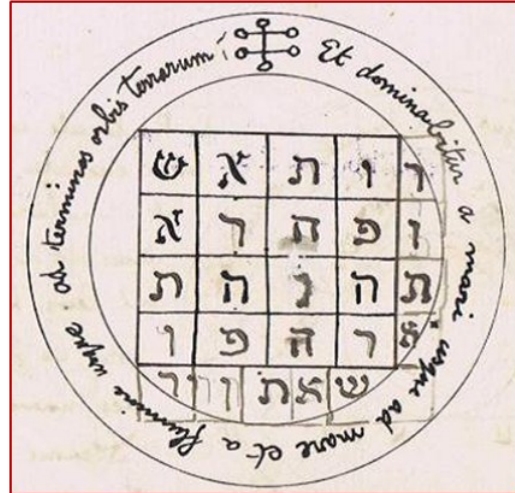 Et dominabitur a mari usque ad mare et a flumine usque ad terminos orbis terrarum
ר ו ת א ש
ו פ ה ר א
ת ה נ ה ת
ר ה פ ו
ש א ת ו ר